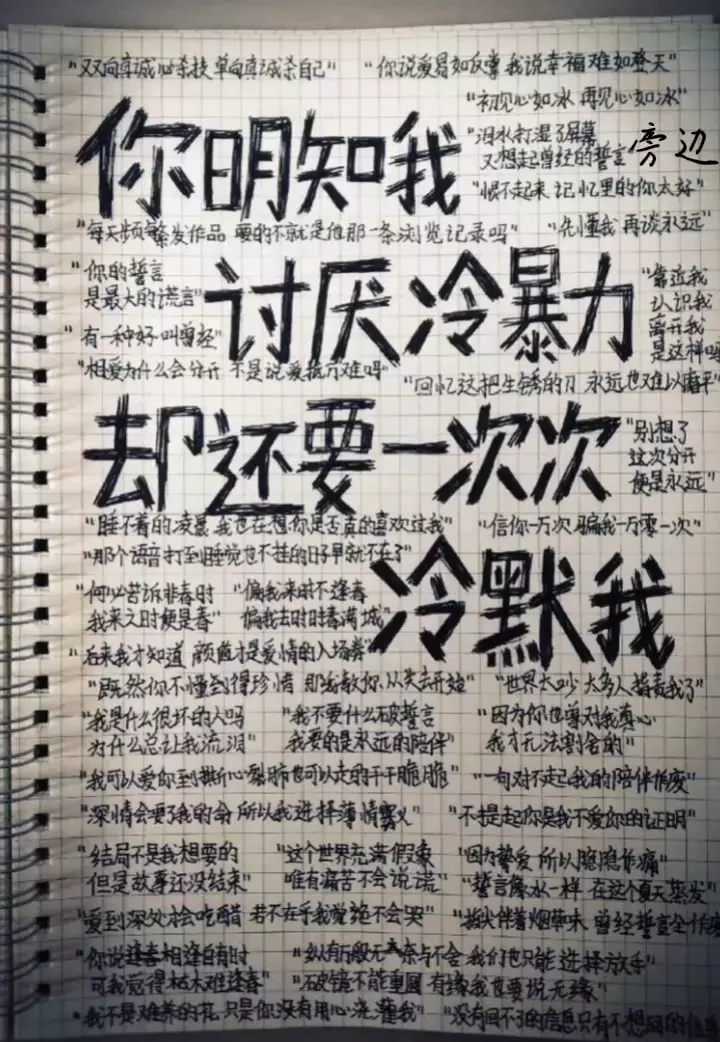 "双向真诚必杀技 单向真诚杀自己" "你说爱易如反掌 我说幸福难如登天"
"初见心如冰 再见心如冰"
你明知我
"泪水打湿了屏幕
又想起曾经的誓言 旁边
"恨不起来 记忆里的你太好"
"每天频繁发作品 要的不就是他那一条浏览记录吗" "先懂我 再谈永远"
"你的誓言
是最大的谎言"
讨厌冷暴力
"靠近我
认识我
离开我
是这样吗
"有一种好 叫曾经"
"相爱为什么会分开 不是说爱抵万难吗"
"回忆这把生锈的刀 永远也难以磨平"
却还要一次次
"别想了
这次分开
便是永远"
"睡不着的凌晨 我也在想你是否真的喜欢过我" "信你一万次 骗我一万零一次"
"那个语音打到睡觉也不挂的日子早就不在了"
冷默我
"何必苦诉非春时 "偏我来时不逢春
我来之时便是春" 偏我去时时春满城"
"后来我才知道 颜值才是爱情的入场券"
"既然你不懂到得珍惜 那我教你从失去开始" "世界太吵 太多人指责我了"
"我是什么很坏的人吗 "我不要什么破誓言 "因为你也曾对我真心
为什么总让我流泪" 我要的是永远的陪伴" 我才无法割舍的"
"我可以爱你到撕心裂肺也可以走的干干脆脆" "一句对不起我的陪伴作废"
"深情会要了我的命 所以我选择薄情寡义" "不提起你是我不爱你的证明"
"结局不是我想要的 "这个世界充满假象 "因为挚爱 所以隐隐作痛"
但是故事还没结束" 唯有痛苦不会说谎" "誓言像水一样 在这个夏天蒸发"
"爱到深处才会吃醋 若不在乎我觉绝不会哭" "指尖伴着烟草味 曾经誓言全作废
"你说逢春相逢自有时 "纵有万般无奈与不舍 我们也只能选择放手"
可我觉得枯木难逢春" "破镜不能重圆 有缘我也要说无缘"
"我不是难养的花 只是你没有用心浇灌我" "没有回不了的信息只有不想回的